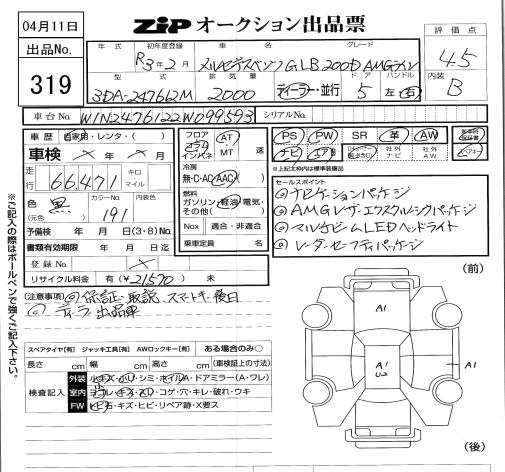 04月11日
出品No.
319
ZIP オークション出品票
年式 初年度登録 車名 グレード
R3年2月 メルセデスベンツ GLB 200D AMGライン
型式 排気量 ドア ハンドル
3DA-247612M 2000 ディーラー・並行 5 左・右
評価点
4.5
内装
B
車台No. W1N2476122W099593 シリアルNo.
車歴 自家用・レンタ・( )
車検 × 年 × 月
走行 66,471 キロ マイル
色 黒 カラーNo. 191 内装色
(元色)
予備検 年 月 日(3・8)No.
書類有効期限 年 月 日迄
登録No. ×
リサイクル料金 有(¥21570) 未
フロア コラム インパネ AT MT 速
冷房
無・C・AC・AAC
燃料
ガソリン・軽油・電気・その他( )
Nox 適合・非適合
乗車定員 名
PS PW SR 革 AW
ナビ エアB
社外ナビ 社外AW
*上記太枠内は標準装備品
セールスポイント
◎ナビゲーションパッケージ
◎AMGレザーエクスクルーシブパッケージ
◎マルチビームLEDヘッドライト
◎レーダーセーフティパッケージ
(注意事項) ◎保証・取説、スマートキー後日
◎ディーラー出品車
※ご記入の際はボールペンで強くご記入下さい。
スペアタイヤ[有] ジャッキ工具[有] AWロックキー[有] ある場合のみ○
長さ cm 幅 cm 高さ cm (車検証上の寸法)
検査記入
外装 小キズ・小ヘコミ・シミ・ホイルA・ドアミラー(A・ワレ)
室内 ヨゴレ・キズ・スレ・コゲ・穴・キレ・破れ・ウキ
FW トビ石・キズ・ヒビ・リペア跡・X要ス
(前)
A1
A1
U2
A1
(後)